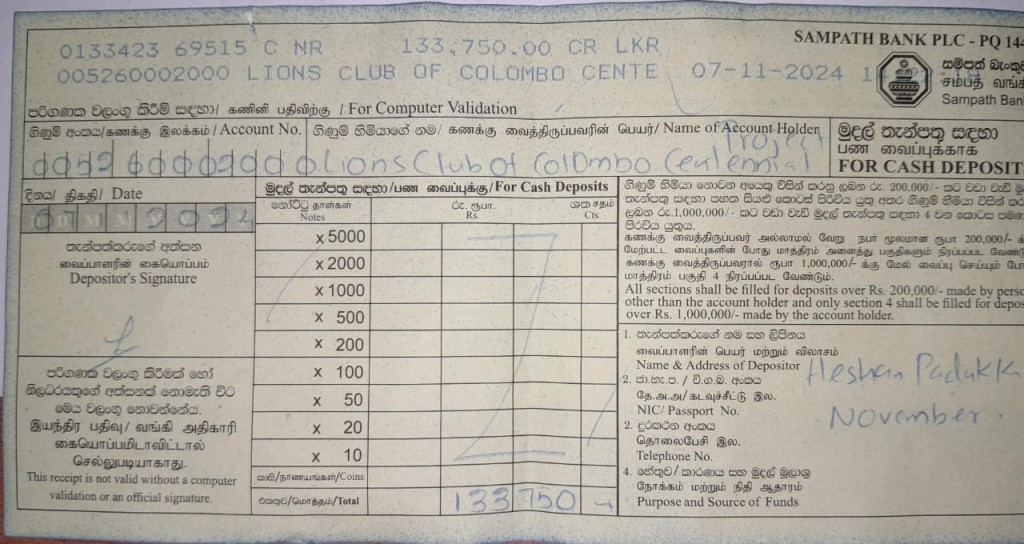 0133423 69515 C NR 133,750.00 CR LKR
005260002000 LIONS CLUB OF COLOMBO CENTE 07-11-2024
SAMPATH BANK PLC - PQ 144
සම්පත් බැංකුව
சம்பத் வங்கி
Sampath Bank
පරිගණක වලංගු කිරීම් සඳහා/ கணினி பதிவிற்கு / For Computer Validation
ගිණුම් අංකය/கணக்கு இலக்கம் / Account No. ගිණුම් හිමියාගේ නම/ கணக்கு வைத்திருப்பவரின் பெயர்/ Name of Account Holder
Project
005260002000 Lions Club of Colombo Centennial
මුදල් තැන්පතු සඳහා
பண வைப்புக்காக
FOR CASH DEPOSIT
දිනය/ திகதி/ Date
තැන්පත්කරුගේ අත්සන
வைப்பாளரின் கையொப்பம்
Depositor's Signature
පරිගණක වලංගු කිරීමක් හෝ
නිලධරයකුගේ අත්සනක් නොමැති විට
මෙය වලංගු නොවන්නේය.
இயந்திர பதிவு/ வங்கி அதிகாரி
கையொப்பமிடாவிட்டால்
செல்லுபடியாகாது.
This receipt is not valid without a computer
validation or an official signature.
මුදල් තැන්පතු සඳහා/பண வைப்புக்கு/For Cash Deposits
නෝට්ටු தாள்கள் රු. ரூபா. ශත சதம்
Notes Rs. Cts.
x 5000
x 2000
x 1000
x 500
x 200
x 100
x 50
x 20
x 10
කාසි/நாணயங்கள்/Coins
එකතුව/மொத்தம்/Total 133750
ගිණුම් හිමියා නොවන අයෙකු විසින් කරනු ලබන රු. 200,000/- කට වඩා වැඩි
තැන්පතු සඳහා පහත සියළු කොටස් පිරවිය යුතු අතර ගිණුම් හිමියා විසින්
ලබන රු.1,000,000/- කට වඩා වැඩි මුදල් තැන්පතු සඳහා 4 වන කොටස
පිරවිය යුතුය.
கணக்கு வைத்திருப்பவர் அல்லாமல் வேறு நபர் மூலமான ரூபா 200,000/-
மேற்பட்ட வைப்புகளின் போது மாத்திரம் அனைத்து பகுதிகளும் நிரப்பப்பட
கணக்கு வைத்திருப்பவரால் ரூபா 1,000,000/- க்கு மேல் வைப்பு செய்யும்
மாத்திரம் பகுதி 4 நிரப்பப்பட வேண்டும்.
All sections shall be filled for deposits over Rs. 200,000/- made by
other than the account holder and only section 4 shall be filled for
over Rs. 1,000,000/- made by the account holder.
1. තැන්පත්කරුගේ නම සහ ලිපිනය
வைப்பாளரின் பெயர் மற்றும் விலாசம்
Name & Address of Depositor Heshan Padukk
2. ජා.හැ.ප. / වි.ග.බ. අංකය
தே.அ.அ/ கடவுச்சீட்டு இல.
NIC/ Passport No. November
2. දුරකථන අංකය
தொலைபேசி இல.
Telephone No.
4. හේතුව / කාරණය සහ මුදල් මූලාශ්‍ර
நோக்கம் மற்றும் நிதி ஆதாரம்
Purpose and Source of Funds